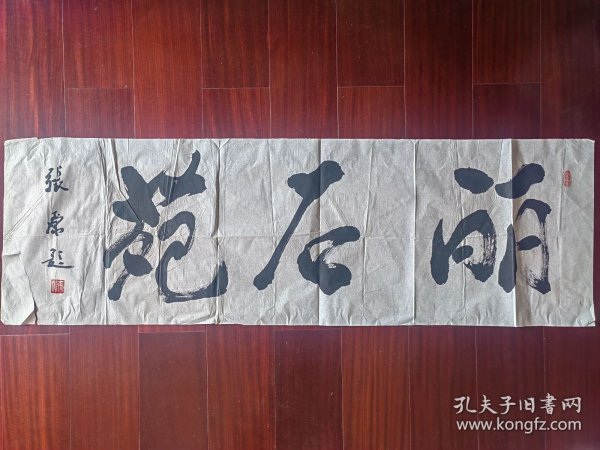 丽石苑
張彪題
孔夫子旧書网
www.kongfz.com